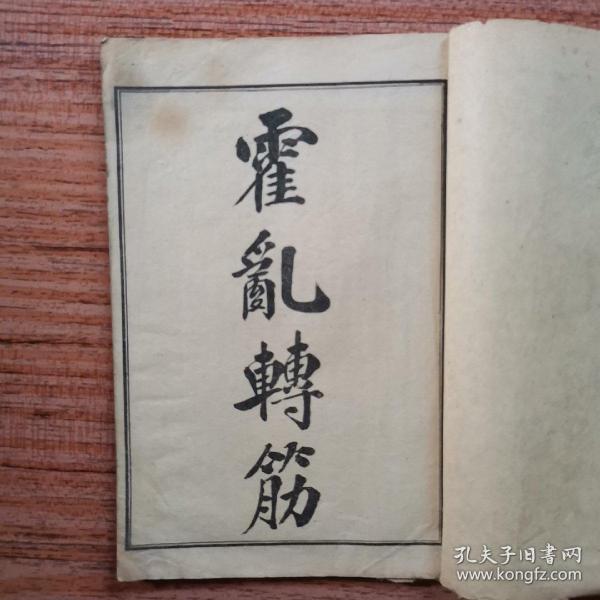 霍亂轉筋
孔夫子旧書网
www.kongfz.com